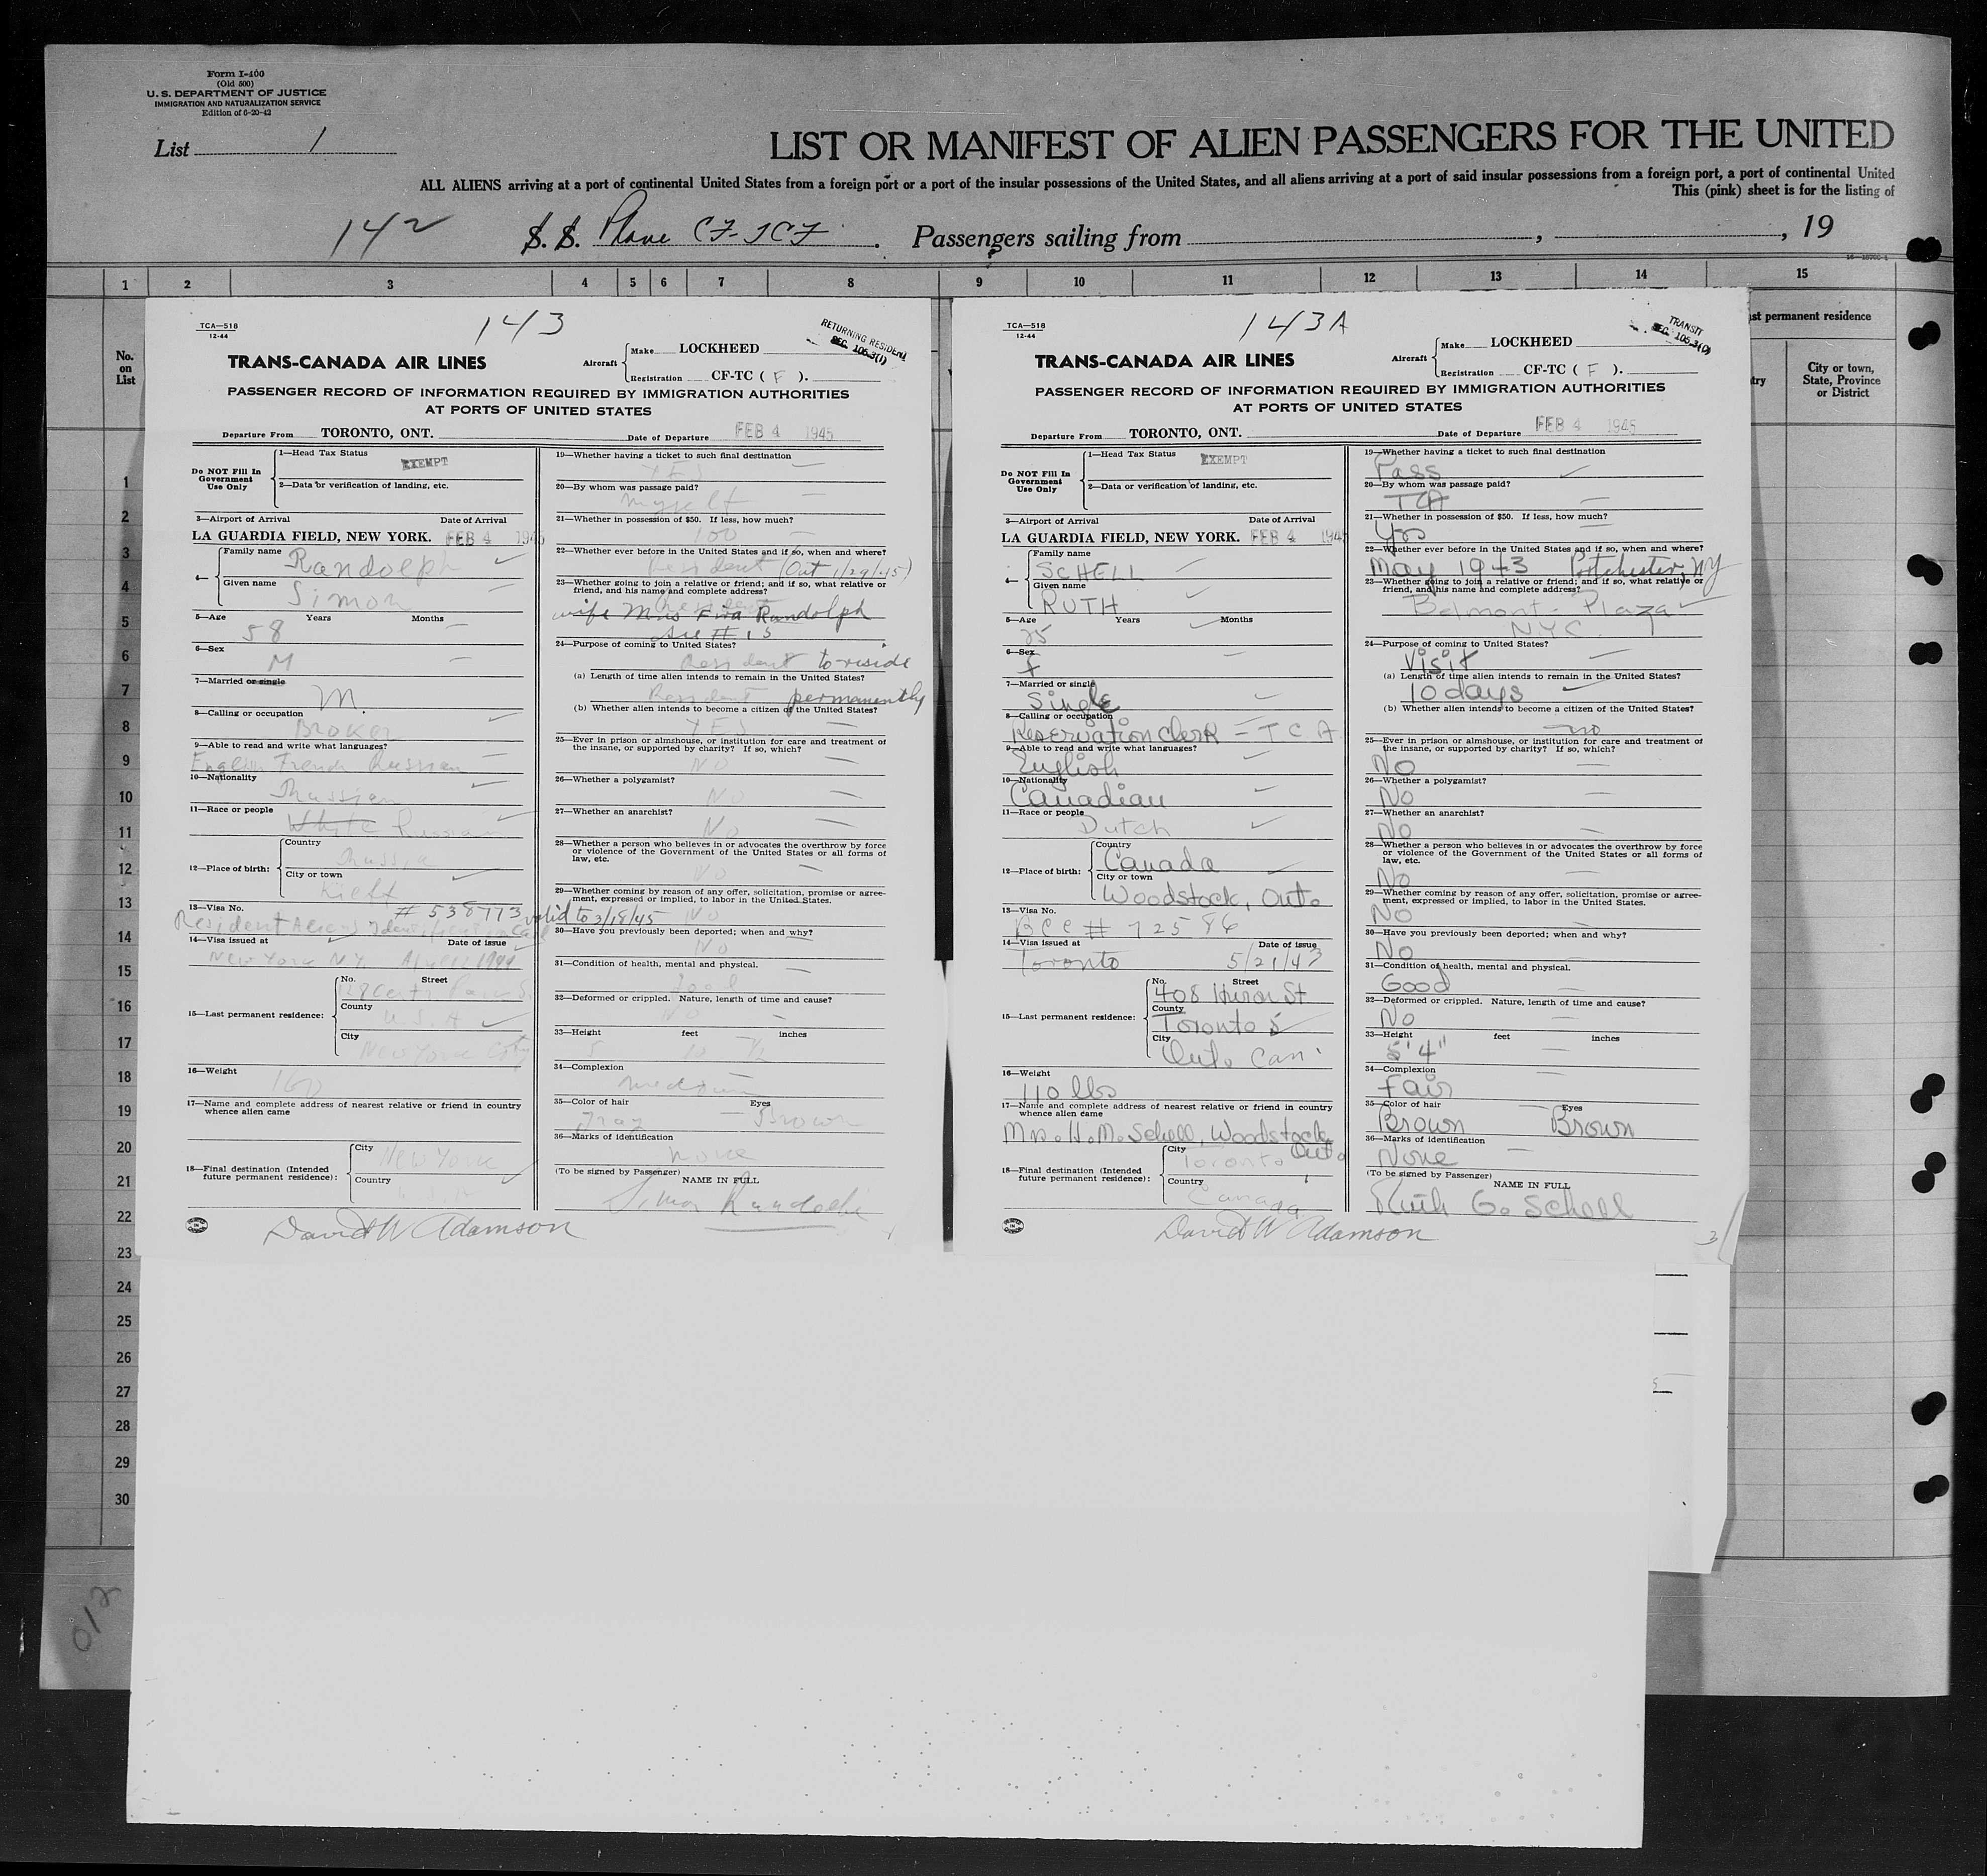 Form I-400
(Old 500)
U. S. DEPARTMENT OF JUSTICE
IMMIGRATION AND NATURALIZATION SERVICE
Edition of 6-20-42
List 1
LIST OR MANIFEST OF ALIEN PASSENGERS FOR THE UNITED
ALL ALIENS arriving at a port of continental United States from a foreign port or a port of the insular possessions of the United States, and all aliens arriving at a port of said insular possessions from a foreign port, a port of continental United
This (pink) sheet is for the listing of
142 S. S. Plane CF-TCF. Passengers sailing from , , 19
1 2 3 4 5 6 7 8 9 10 11 12 13 14 15
No. on List
st permanent residence
try
City or town, State, Province or District
1
2
3
4
5
6
7
8
9
10
11
12
13
14
15
16
17
18
19
20
21
22
23
24
25
26
27
28
29
30
012
TCA—518
12-44
143
RETURNING RESIDENT
SEC. 106.3(1)
TRANS-CANADA AIR LINES
Aircraft
Make LOCKHEED
Registration CF-TC ( F ).
PASSENGER RECORD OF INFORMATION REQUIRED BY IMMIGRATION AUTHORITIES
AT PORTS OF UNITED STATES
Departure From TORONTO, ONT. Date of Departure FEB 4 1945
Do NOT Fill In Government Use Only
1—Head Tax Status EXEMPT
2—Data or verification of landing, etc.
3—Airport of Arrival Date of Arrival
LA GUARDIA FIELD, NEW YORK. FEB 4 1945
4— Family name Randolph
Given name Simon
5—Age Years Months
58
6—Sex
M
7—Married or single
M.
8—Calling or occupation
Broker
9—Able to read and write what languages?
English French Russian
10—Nationality
Russian
11—Race or people
White Russian
12—Place of birth: Country
Russia
City or town
Kieff
13—Visa No. # 538773 valid to 3/18/45
Resident Aliens Identification Card
14—Visa issued at Date of issue
New York N.Y. April 1944
15—Last permanent residence: No. Street
County
U S A
City
New York City
16—Weight
160
17—Name and complete address of nearest relative or friend in country whence alien came
18—Final destination (Intended future permanent residence): City
New York
Country
U.S.A.
David W Adamson
19—Whether having a ticket to such final destination
YES
20—By whom was passage paid?
Myself
21—Whether in possession of $50. If less, how much?
100
22—Whether ever before in the United States and if so, when and where?
Resident (Out 1/29/45)
23—Whether going to join a relative or friend; and if so, what relative or friend, and his name and complete address?
wife Mrs Randolph
See # 15
24—Purpose of coming to United States?
Resident to reside
(a) Length of time alien intends to remain in the United States?
Resident permanently
(b) Whether alien intends to become a citizen of the United States?
YES
25—Ever in prison or almshouse, or institution for care and treatment of the insane, or supported by charity? If so, which?
NO
26—Whether a polygamist?
NO
27—Whether an anarchist?
No
28—Whether a person who believes in or advocates the overthrow by force or violence of the Government of the United States or all forms of law, etc.
NO
29—Whether coming by reason of any offer, solicitation, promise or agreement, expressed or implied, to labor in the United States.
NO
30—Have you previously been deported; when and why?
NO
31—Condition of health, mental and physical.
good
32—Deformed or crippled. Nature, length of time and cause?
NO
33—Height feet inches
5 10 1/2
34—Complexion
medium
35—Color of hair Eyes
Gray Brown
36—Marks of identification
none
(To be signed by Passenger) NAME IN FULL
Simon Randolph
TCA—518
12-44
143A
TRANSIT
SEC. 106.3(0)
TRANS-CANADA AIR LINES
Aircraft
Make LOCKHEED
Registration CF-TC ( F ).
PASSENGER RECORD OF INFORMATION REQUIRED BY IMMIGRATION AUTHORITIES
AT PORTS OF UNITED STATES
Departure From TORONTO, ONT. Date of Departure FEB 4 1945
Do NOT Fill In Government Use Only
1—Head Tax Status EXEMPT
2—Data or verification of landing, etc.
3—Airport of Arrival Date of Arrival
LA GUARDIA FIELD, NEW YORK. FEB 4 194
4— Family name
SCHELL
Given name
RUTH
5—Age Years Months
25
6—Sex
f
7—Married or single
Single
8—Calling or occupation
Reservation Clerk - T C A
9—Able to read and write what languages?
English
10—Nationality
Canadian
11—Race or people
Dutch
12—Place of birth: Country
Canada
City or town
Woodstock, Ont.
13—Visa No.
BCC # 72586
14—Visa issued at Date of issue
Toronto 5/21/43
15—Last permanent residence: No. Street
408 Huron St
County
Toronto 5
City
Ont. Can.
16—Weight
110 lbs
17—Name and complete address of nearest relative or friend in country whence alien came
Mrs. H. M. Schell, Woodstock Ont.
18—Final destination (Intended future permanent residence): City
Toronto
Country
Canada
David W Adamson
19—Whether having a ticket to such final destination
Pass
20—By whom was passage paid?
TCA
21—Whether in possession of $50. If less, how much?
Yes
22—Whether ever before in the United States and if so, when and where?
May 1943 Portchester, NY
23—Whether going to join a relative or friend; and if so, what relative or friend, and his name and complete address?
Belmont-Plaza
NYC
24—Purpose of coming to United States?
Visit
(a) Length of time alien intends to remain in the United States?
10 days
(b) Whether alien intends to become a citizen of the United States?
no
25—Ever in prison or almshouse, or institution for care and treatment of the insane, or supported by charity? If so, which?
No
26—Whether a polygamist?
No
27—Whether an anarchist?
No
28—Whether a person who believes in or advocates the overthrow by force or violence of the Government of the United States or all forms of law, etc.
No
29—Whether coming by reason of any offer, solicitation, promise or agreement, expressed or implied, to labor in the United States.
No
30—Have you previously been deported; when and why?
No
31—Condition of health, mental and physical.
Good
32—Deformed or crippled. Nature, length of time and cause?
No
33—Height feet inches
5' 4"
34—Complexion
Fair
35—Color of hair Eyes
Brown Brown
36—Marks of identification
None
(To be signed by Passenger) NAME IN FULL
Ruth G. Schell
3